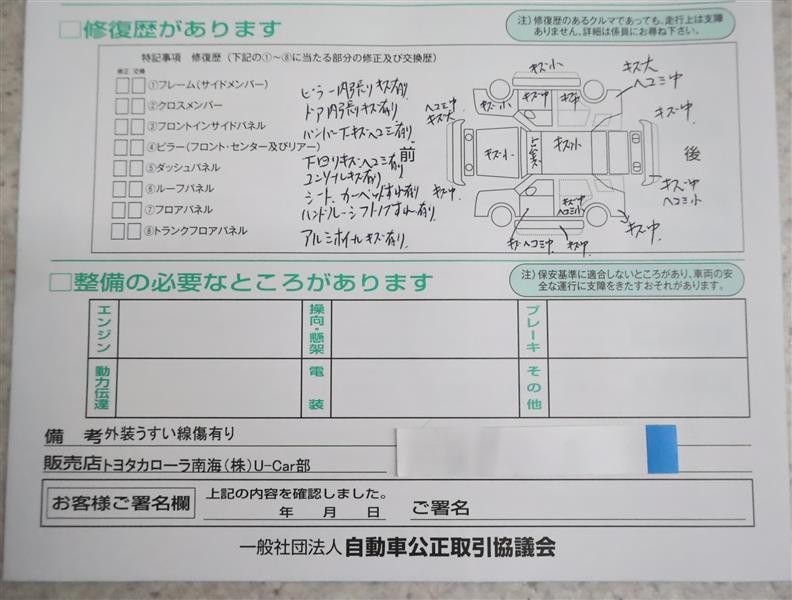 □修復歴があります
注）修復歴のあるクルマであっても、走行上は支障
ありません。詳細は係員にお尋ね下さい。
特記事項 修復歴（下記の①～⑧に当たる部分の修正及び交換歴）
修正 交換
①フレーム（サイドメンバー）
②クロスメンバー
③フロントインサイドパネル
④ピラー（フロント・センター及びリアー）
⑤ダッシュパネル
⑥ルーフパネル
⑦フロアパネル
⑧トランクフロアパネル
ピラー内張りキズ有り
ドア内張りキズ有り
バンパー下キズ・ヘコミ有り
下回りキズ・ヘコミ有り
コンソールキズ有り
シート、カーペットすれ有り
ハンドル・シフトノブすれ有り
アルミホイルキズ有り
前
後
キズ小
キズ大
ヘコミ中
キズ小
キズ中
キズ中
キズ中
ヘコミ中
キズ大
キズ小
キズ小
キズ中
ヘコミ小
キズ中
キズ中
ヘコミ小
キズ中
キズ ヘコミ中
キズ中
□整備の必要なところがあります
注）保安基準に適合しないところがあり、車両の安
全な運行に支障をきたすおそれがあります。
エンジン
操向・懸架
ブレーキ
動力伝達
電装
その他
備 考 外装うすい線傷有り
販売店 トヨタカローラ南海（株）U-Car部
お客様ご署名欄
上記の内容を確認しました。
年 月 日
ご署名
一般社団法人 自動車公正取引協議会